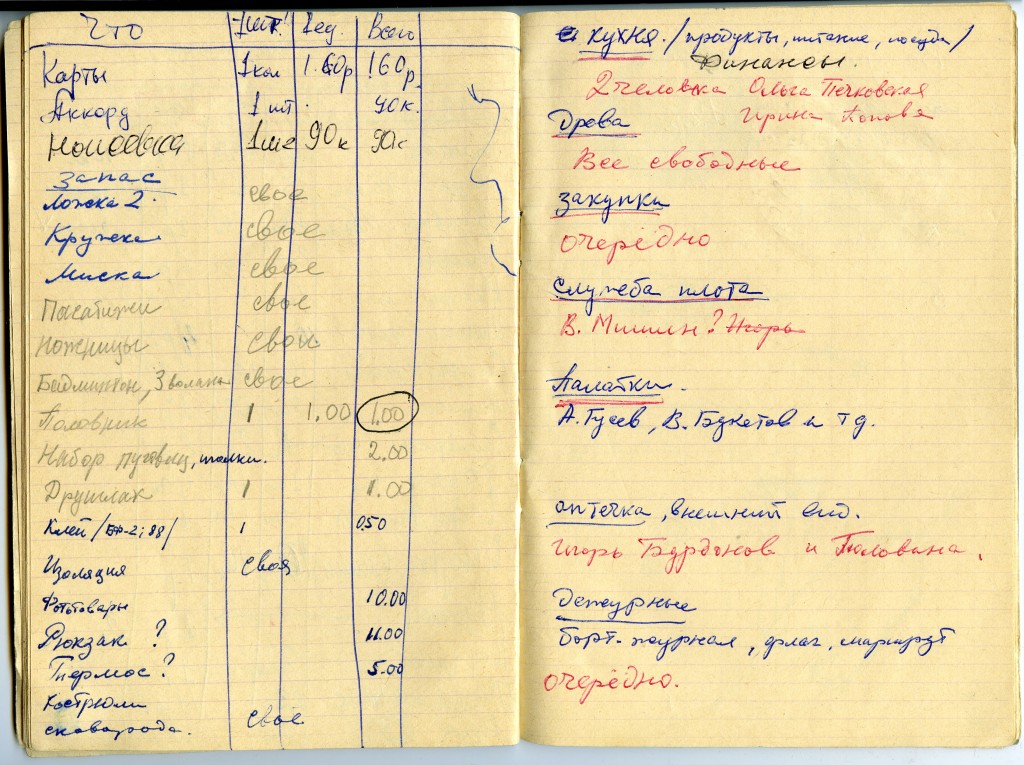 Что 1 шт. 1 ед. Всего
Карты 1 кол 1.60р 1.60р.
Аккорд 1 шт. 40 к.
1шт 90к 90к
запас
Ложка 2. свое
Кружка свое
Миска свое
Пасатижи свое
Ножницы свои
Бадминтон, 3 волана свое
Половник 1 1.00 1.00
Набор пуговиц, иголки. 2.00
Друшлак 1 1.00
Клей /БФ-2; 88/ 1 0.50
Изоляция своя
Фототовары 10.00
Рюкзак ? 11.00
Термос ? 5.00
Кострюли
сковарода. свое
кухня. /продукты, питание, посуда/
Финансы.
2 человека Ольга Печковская
Ирина Попова
Дрова
Все свободные
закупки
очерёдно
Служба плота
В. Мишин? Игорь
Палатки.
А. Гусев, В. Букетов и т д.
аптечка, внешний вид.
Игорь Бурдонов и
Дежурные
борт-журнал, флаг, маршрут
очерёдно.